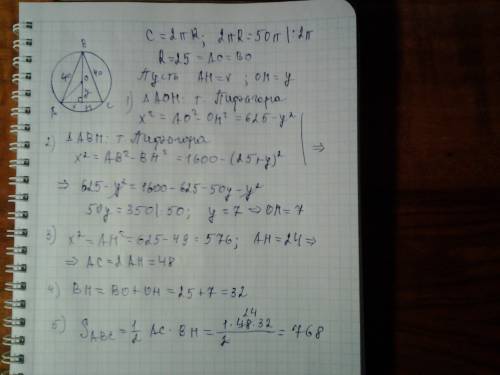 C = 2πR; 2πR = 50π |:2π
R = 25 = AO = BO
Пусть AH = x; OH = y
B
40 40
O
y
A x H C
1) ΔAOH: т. Пифагора
x² = AO² - OH² = 625 - y²
2) ΔABH: т. Пифагора
x² = AB² - BH² = 1600 - (25+y)² ⇒
⇒ 625 - y² = 1600 - 625 - 50y - y²
50y = 350 |:50; y = 7 ⇒ OH = 7
3) x² = AH² = 625 - 49 = 576; AH = 24 ⇒
⇒ AC = 2AH = 48
4) BH = BO + OH = 25 + 7 = 32
5) S_ABC = 1/2 AC · BH = 1·48·32/2 = 768
24